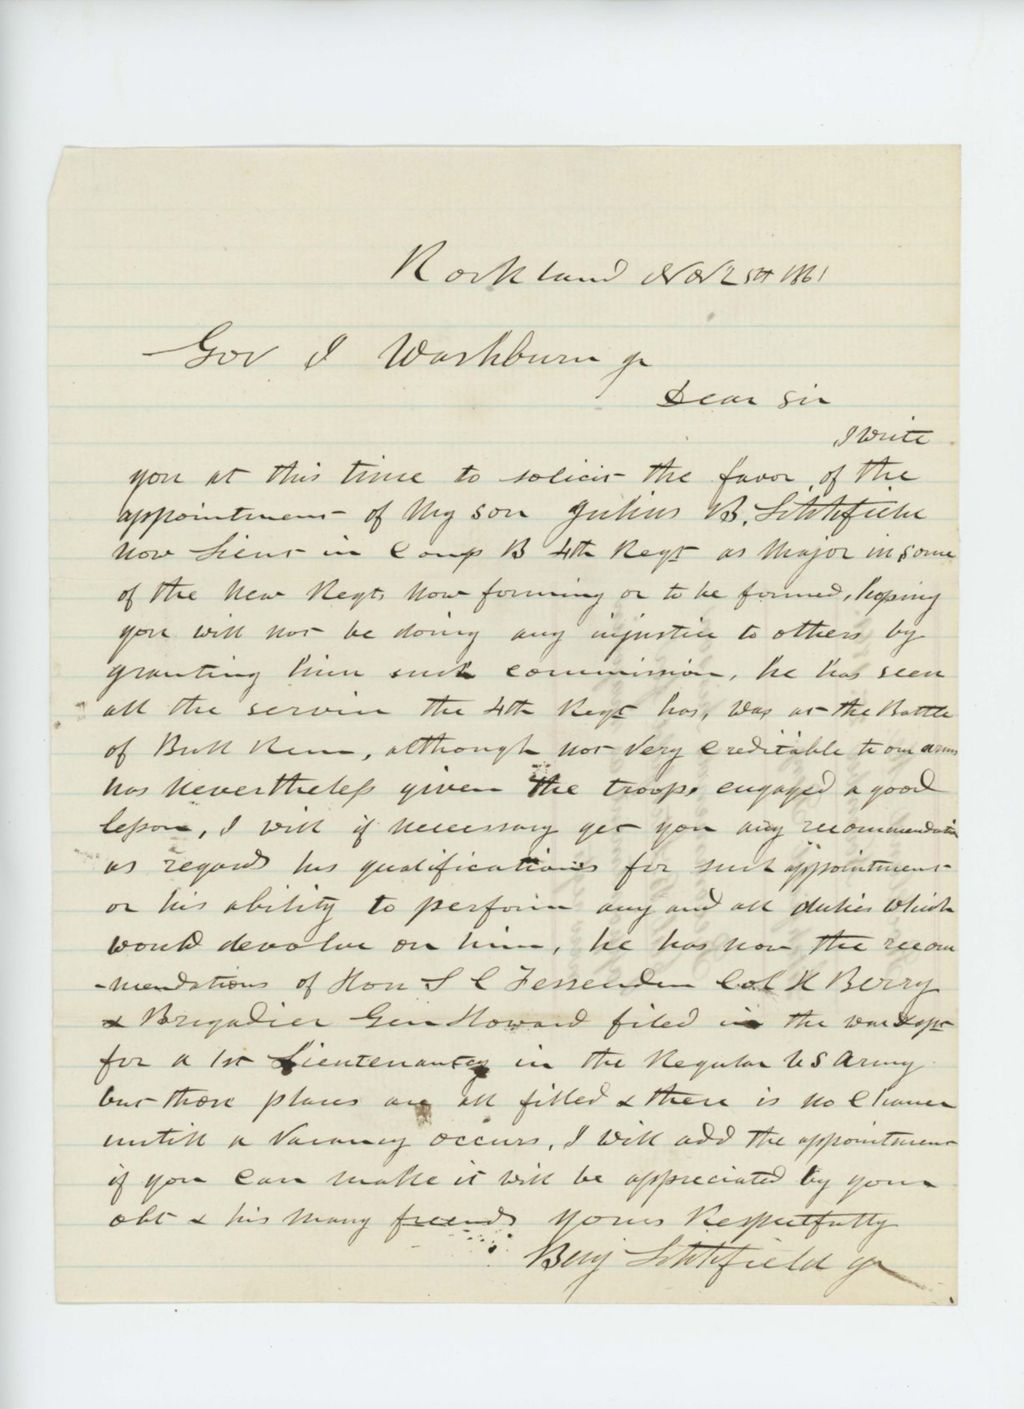 Rockland Nov 25th 1861
Gov I Washburn jr
Dear Sir
I write
you at this time to solicit the favor of the
appointment of My son Julius B. Litchfield
now Lieut in Comp B 4th Regt as Major in some
of the New Regts Now forming or to be formed, hoping
you will not be doing any injustice to others by
granting him such commission, he has seen
all the service the 4th Regt has, was at the Battle
of Bull Run, although not very creditable to our arms
has nevertheless given the troops engaged a good
lesson, I will if necessary get you any recommendation
as regards his qualifications for such appointment
or his ability to perform any and all duties which
would devolve on him, he has now the recom
-mendations of Hon S C Fessenden Col H Berry
& Brigadier Gen Howard filed in the war dept
for a 1st Lieutenantcy in the Regular US Army
but those places are all filled & there is no chance
untill a vacancy occurs, I will add the appointment
if you can make it will be appreciated by your
obt & his many friends Yours Respectfully
Benj Litchfield jr